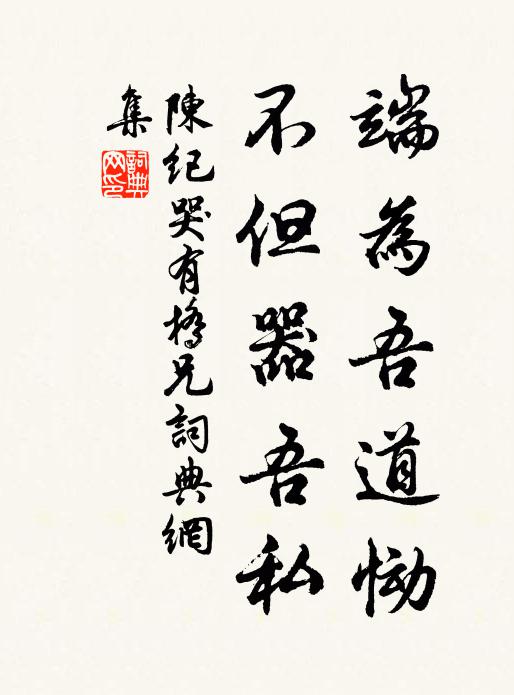 端為吾道慟
不但器吾私
陳紀哭有橋兄詞典網
集
詞典
网印